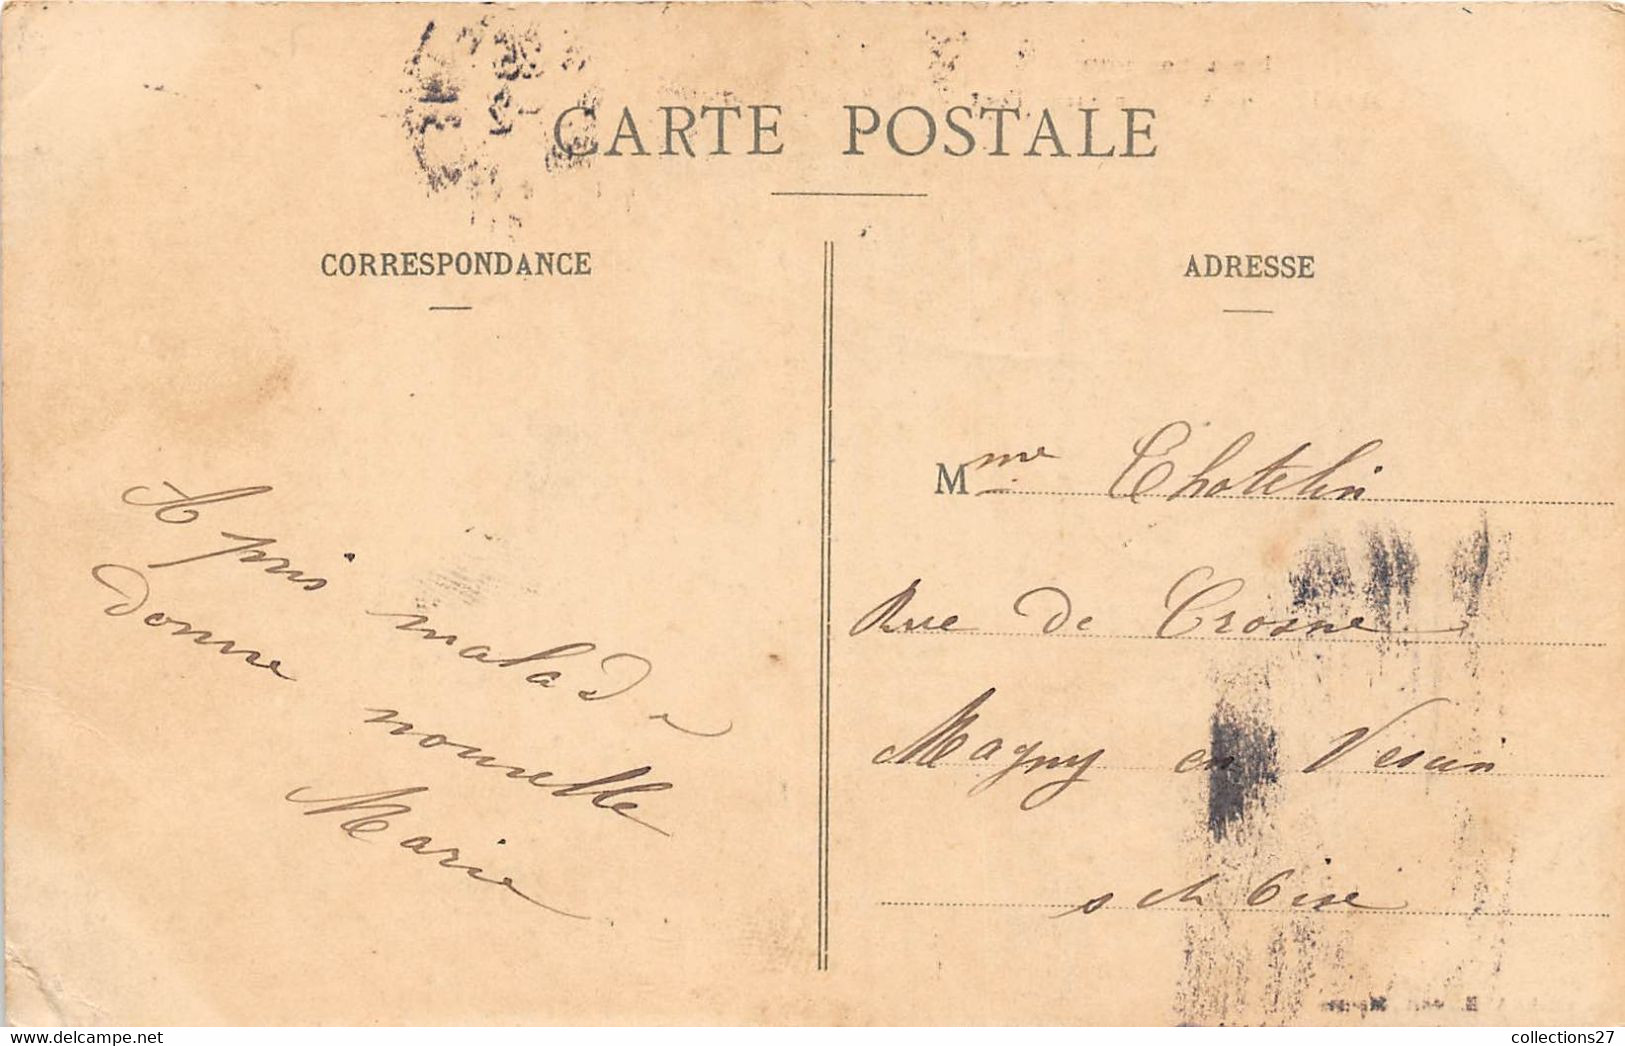 CARTE POSTALE
CORRESPONDANCE
A pris malad
donne nouvelle
Marie
ADRESSE
Mme Chotelin
Rue de Crosne
Magny en Vexin
s et Oise
www.delcampe.net
collections27